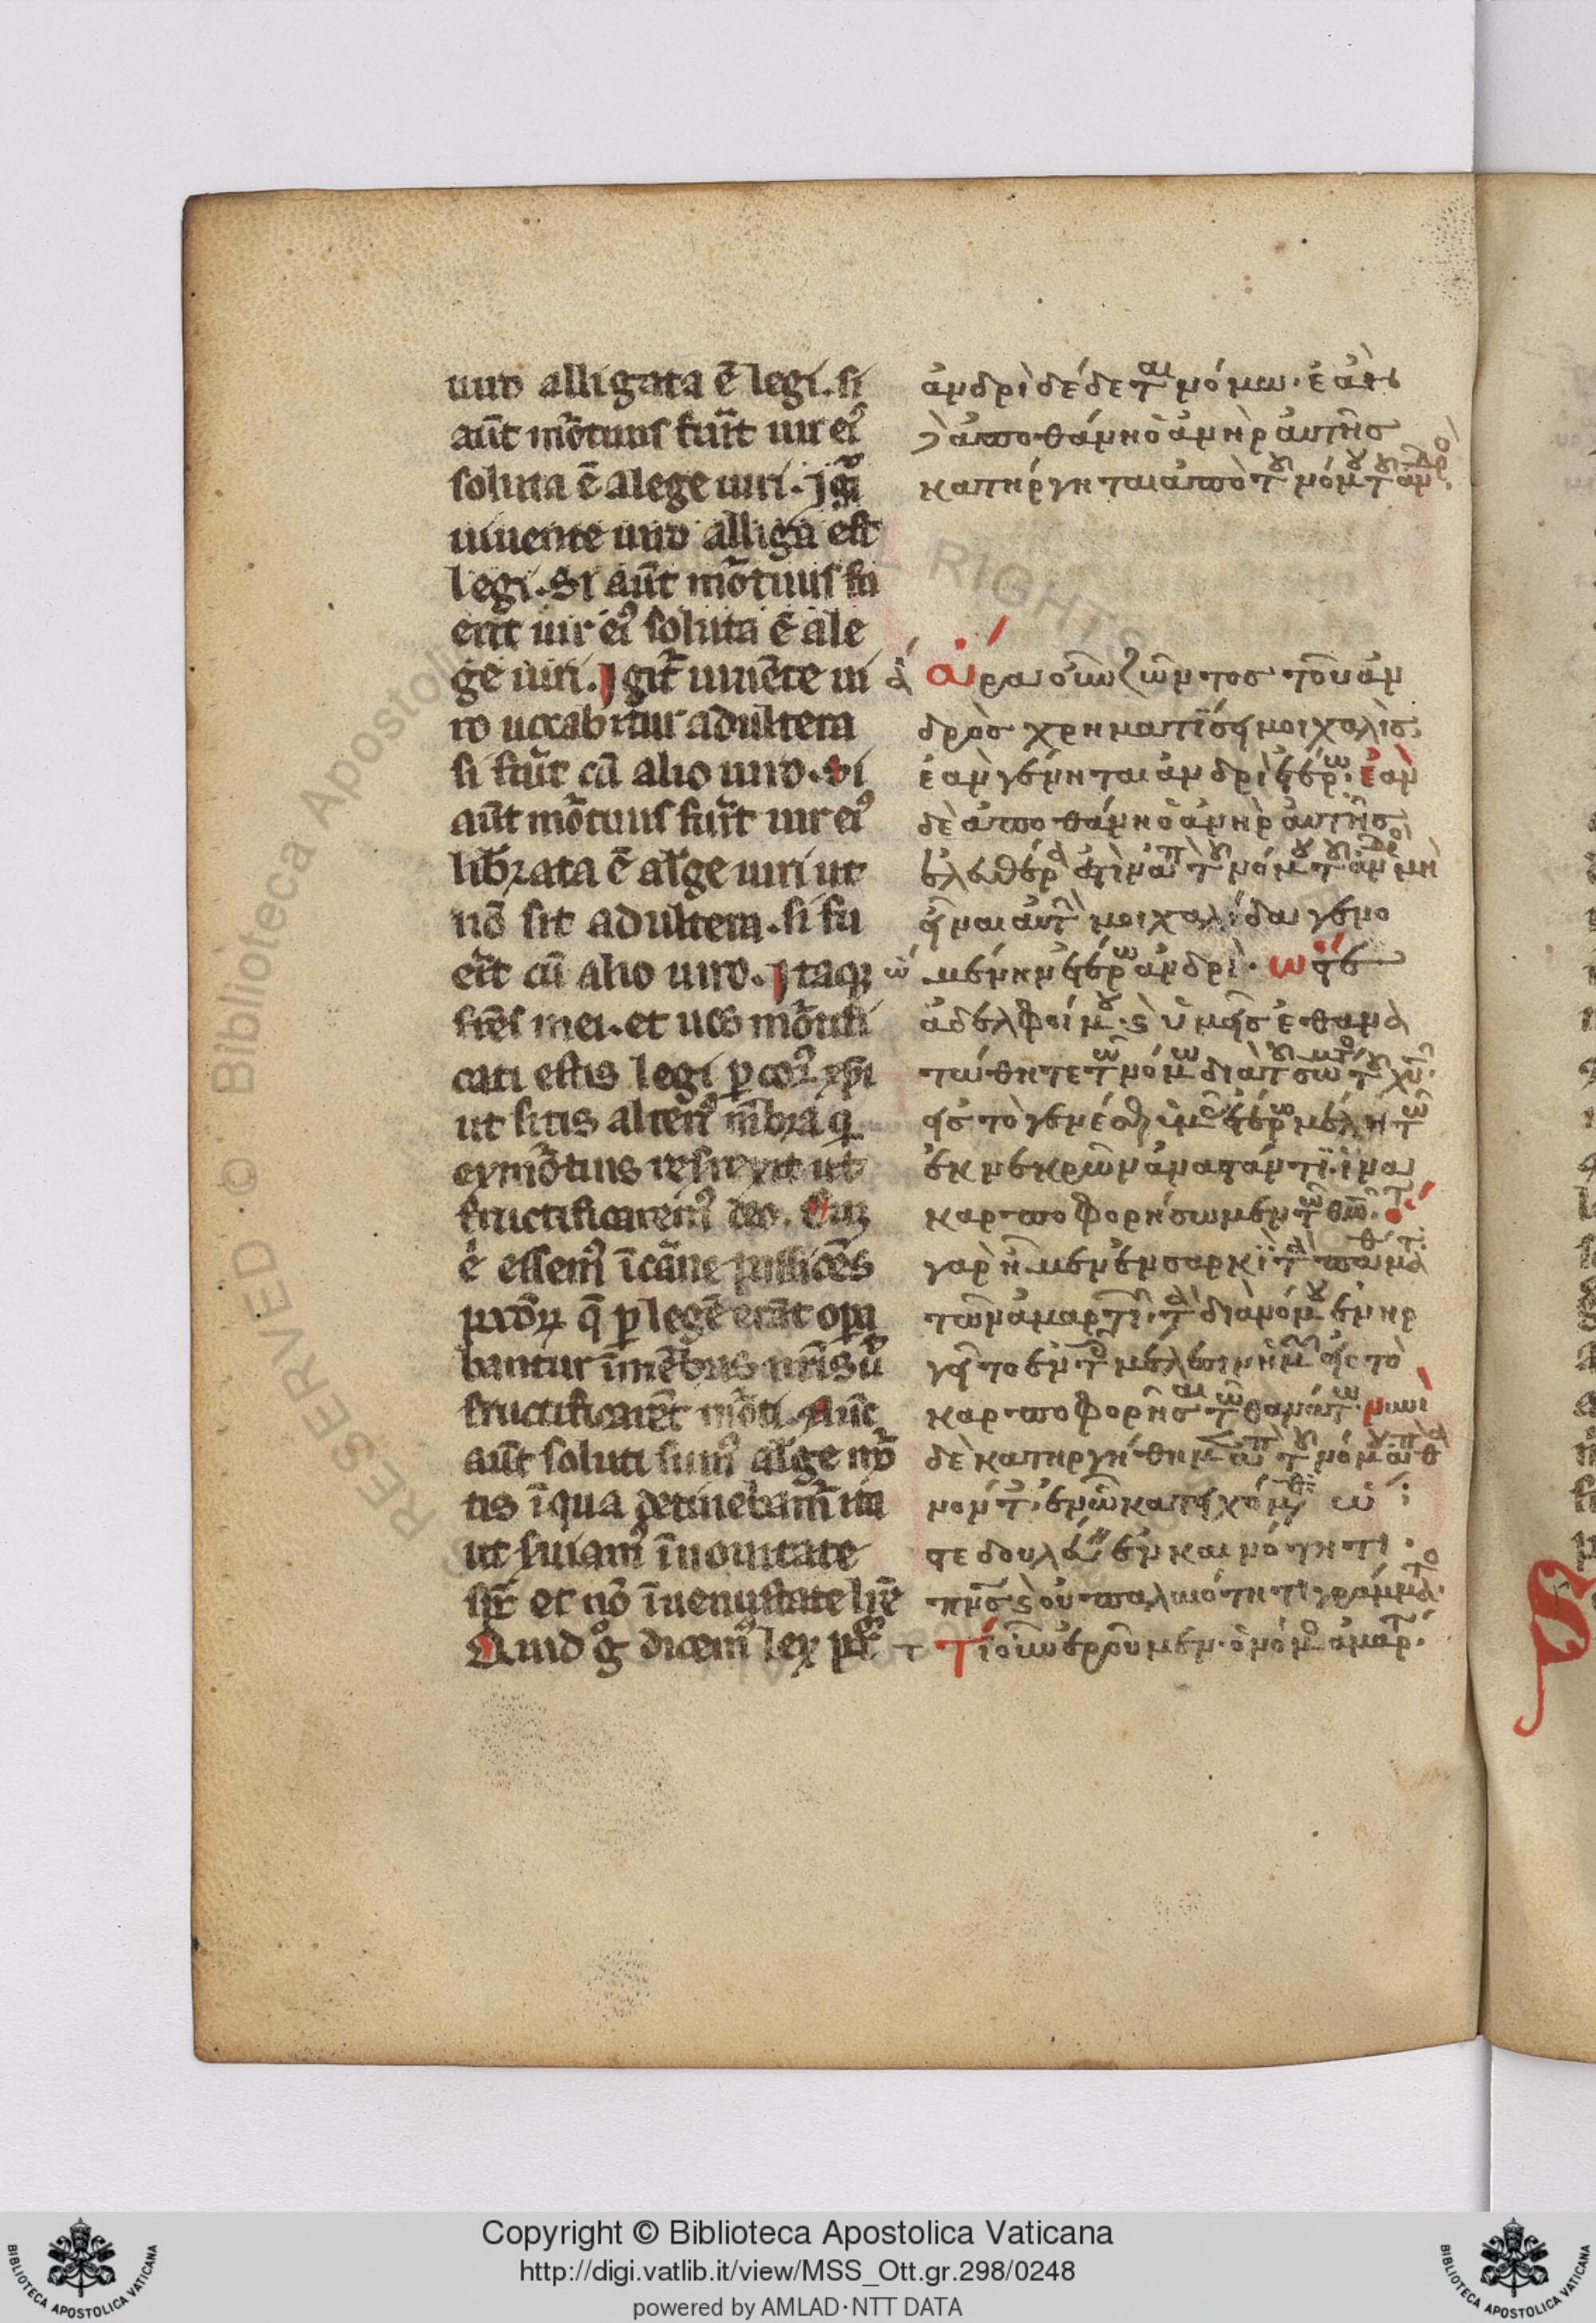 uiro alligata ē legi. si
aūt mōtuus fuĩt uir eiꝰ
soluta ē a lege uiri. Jgr̃
uiuente uiro alligã est
legi. Si aūt mõtuus fu
erit uir eiꝰ soluta ē a le
ge uiri. Jgit̃ uiuēte ui
ro uocabitur adultera
si fuĩt cū alio uiro. Si
aūt mõtuus fuĩt uir eiꝰ
lib̃rata ē a lege uiri ut
nō sit adultera. si fu
eĩt cū alio uiro. Jtaqȝ
fr̃es mei. et uos mõtifi
cati estis legi ꝑ corꝰ xp̃i
ut sitis alteriꝰ mēbra qͥ
ex mõtuis resurexit ut
fructificaremꝰ deo. Cuȝ
ē essemꝰ ī carne passiões
pccõrꝫ q̄ ꝑ legē erāt opa
bantur ī mēbris nr̃is ut
fructificarēt mõti. Nūc
aūt soluti sumꝰ a lege mõ
tis ī qua detinebamꝰ ita
ut suiamꝰ ī nouitate
sp̃s et nō ī uenustate lr̃e
Quid gͦ dicemꝰ lex pcc̃
ἀνδρὶ δέδεται νόμω. ἐὰν
δὲ ἀποθάνη ὁ ἀνὴρ ἀυτῆσ
κατήργηται ἀπὸ τοῦ νόμου τοῦ ἀνδρόσ.
ἄ ἄρα οὖν ζῶντοσ τοῦ ἀν
δρὸσ χρηματίσει μοιχαλὶσ
ἐὰν γένηται ἀνδρὶ ἑτέρω. ἐὰν
δὲ ἀποθάνη ὁ ἀνὴρ ἀυτῆσ
ἐλευθέρα ἐστὶν ἀπὸ τοῦ νόμου τοῦ ἀνδρὸσ μὴ
εἶναι ἀυτὴν μοιχαλίδα γενο
ὥ μένην ἑτέρω ἀνδρὶ. ὥστε
ἀδελφοί μου. ϗ ὑμεῖσ ἐθανα
τώθητε τῶ νόμω διὰ τοῦ σώματοσ τοῦ χυ.
εἰσ τὸ γενέσθαι ὑμᾶσ ἑτέρω μέλη τῶ
ἐκ νεκρῶν ἀναστάντι. ἵνα
καρποφορήσωμεν τῶ θω. ὅτε
γὰρ ἦμεν ἐν σαρκὶ τὰ παθήματα
τῶν ἁμαρτιῶν. τὰ διὰ νόμου ἐνηρ
γεῖτο ἐν τοῖσ μέλεσιν ἡμῶν εἰσ τὸ
καρποφορῆσαι τῶ θανάτω. νυνὶ
δὲ κατηργήθημεν ἀπὸ τοῦ νόμου ἀποθα
νόντεσ. ἐν ὧ κατειχόμεθα ὡσ
τε δουλεύειν ἐν καινότητι
πνσ ϗ οὐ παλαιότητι γράμματοσ.
τ Τί οὖν ἐροῦμεν. ὁ νόμοσ ἁμαρτία.
RESERVED · © Biblioteca Apostolica
RIGHTS
Copyright © Biblioteca Apostolica Vaticana
http://digi.vatlib.it/view/MSS_Ott.gr.298/0248
powered by AMLAD·NTT DATA
BIBLIOTECA APOSTOLICA VATICANA
BIBLIOTECA APOSTOLICA VATICANA